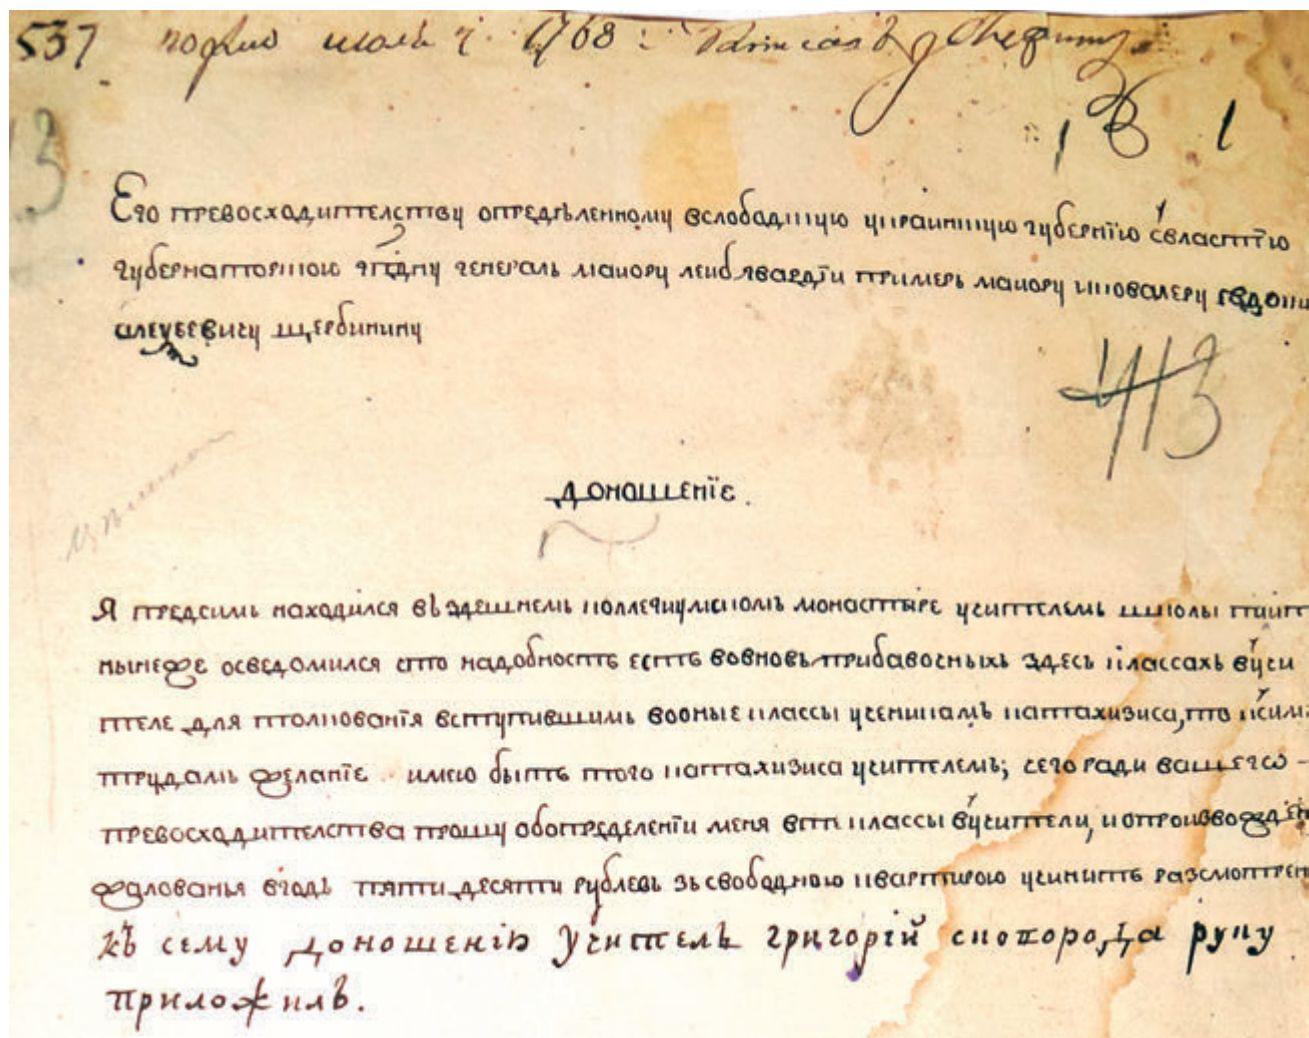 537 1768:
1
Его превосходителству определенному вслободскую украинскую губернїю свластїю
губернаторскою гспдну генераль маиору леиб гвардїи примеръ маиору икавалеру евдоки
алеѯеевичу щербинину
413
доношенїе.
Я предсимъ находился въ здешнемъ коллегиумскомъ монастыре учителемъ школы пїит
нынеже осведомился что надобность есть вовновь прибавочныхъ здесь классахъ вучи
теле для толкованїя вступившимъ вооные классы ученикамъ катахизиса, то ксимъ
трудамъ желанїе имею быть того катахизиса учителемъ; сего ради вашегѡ -
превосходителства прошу обопределенїи меня втѣ классы вучители, иопроизвожден
жалованья вгодъ пяти десяти рублевъ зъсвободною квартирою учинить разсмотрен
къ сему доношенїю учитель григорїй сковорода руку
приложилъ.